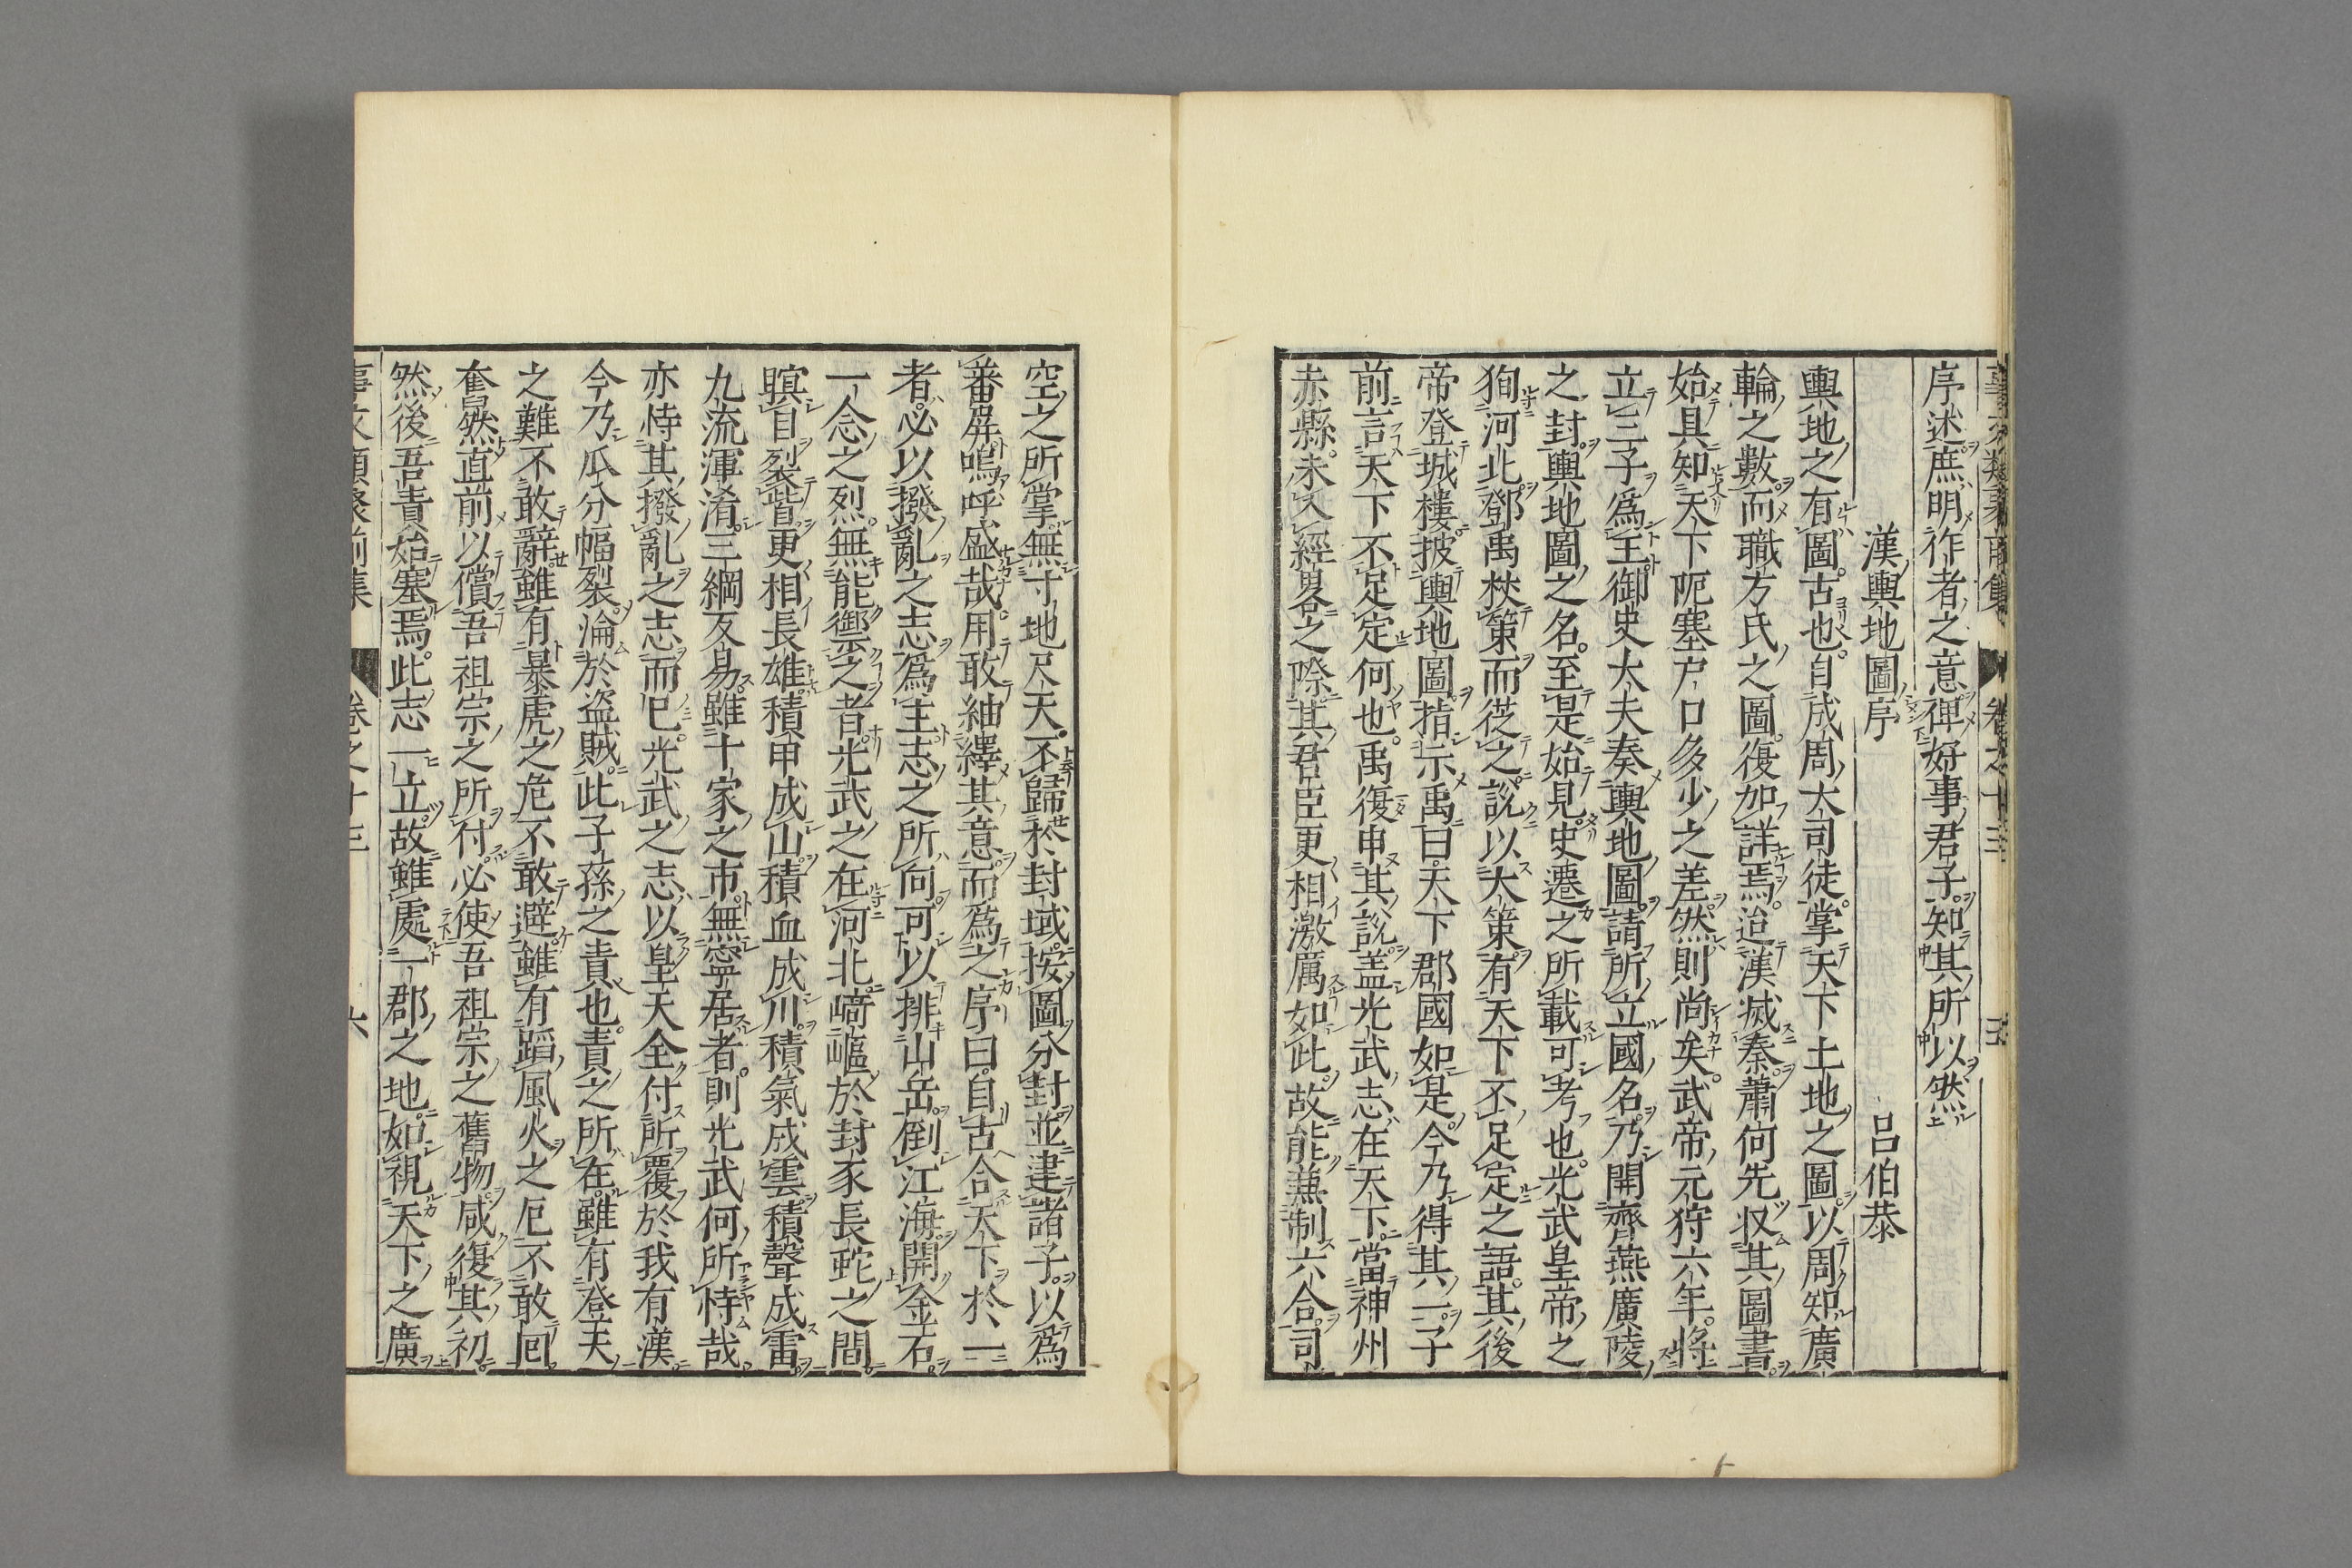 序述庶明作者之意俾好事君子知其所以然
漢輿地圖序 呂伯恭
輿地之有圖古也自成周大司徒掌天下土地之圖以周知廣
輪之數而職方氏之圖復加詳焉迨漢滅秦蕭何先収其圖書
始具知天下阨塞戸口多少之差然則尚矣武帝元狩六年將
立三子爲王御史大夫奏輿地圖請所立國名乃開齊燕廣陵
之封輿地圖之名至是始見史遷之所載可考也光武皇帝之
狥河北鄧禹杖策而從之説以大策有天下不足定之語其後
帝登城樓披輿地圖指示禹曰天下郡國如是今乃得其一子
前言天下不足定何也禹復申其説盖光武志在天下當神州
赤縣未入經畧之際其君臣更相激厲如此故能兼制六合司
空之所掌無寸地尺天不歸於封域按圖分封並建諸子以爲
番屏嗚呼盛哉用敢紬繹其意而爲之序曰自古合天下於一
者必以撥亂之志爲主志之所向可以排山岳倒江海開金石
一念之烈無能禦之者光武之在河北崎嶇於封豕長蛇之間
瞋目裂眥更相長雄積甲成山積血成川積氣成雲積聲成雷
九流渾淆三綱反易雖十家之市無寧居者則光武何所恃哉
亦恃其撥亂之志而已光武之志以皇天全付所覆於我有漢
今乃瓜分幅裂淪於盗賊此子孫之責也責之所在雖有登天
之難不敢辭雖有暴虎之危不敢避雖有蹈風火之厄不敢囘
奮然直前以償吾祖宗之所付必使吾祖宗之舊物咸復其初
然後吾責始塞焉此志一立故雖處一郡之地如視天下之廣
事文類聚前集 卷之十三 六